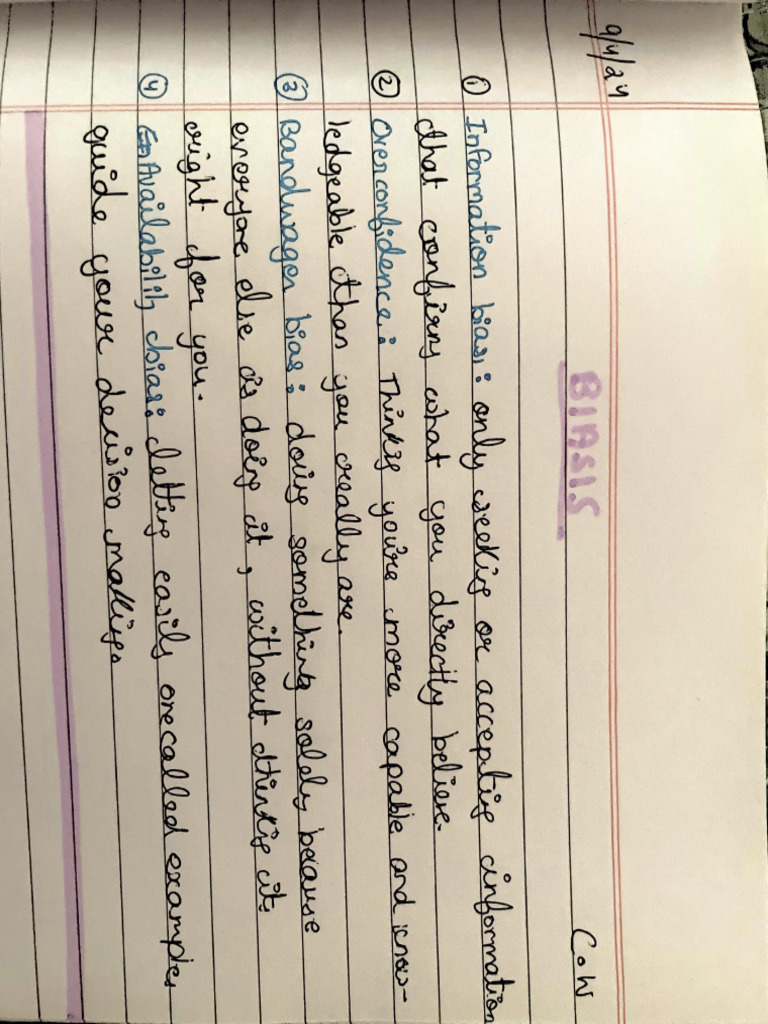 9/4/24
C.W
BIASIS
① Information bias: only seeking or accepting information
that confirms what you directly believe.
② Overconfidence: Thinking you're more capable and know-
ledgeable than you really are.
③ Bandwagon bias: doing something solely because
everyone else is doing it, without thinking its
right for you.
④ Availability bias: letting easily recalled examples
guide your decision making.